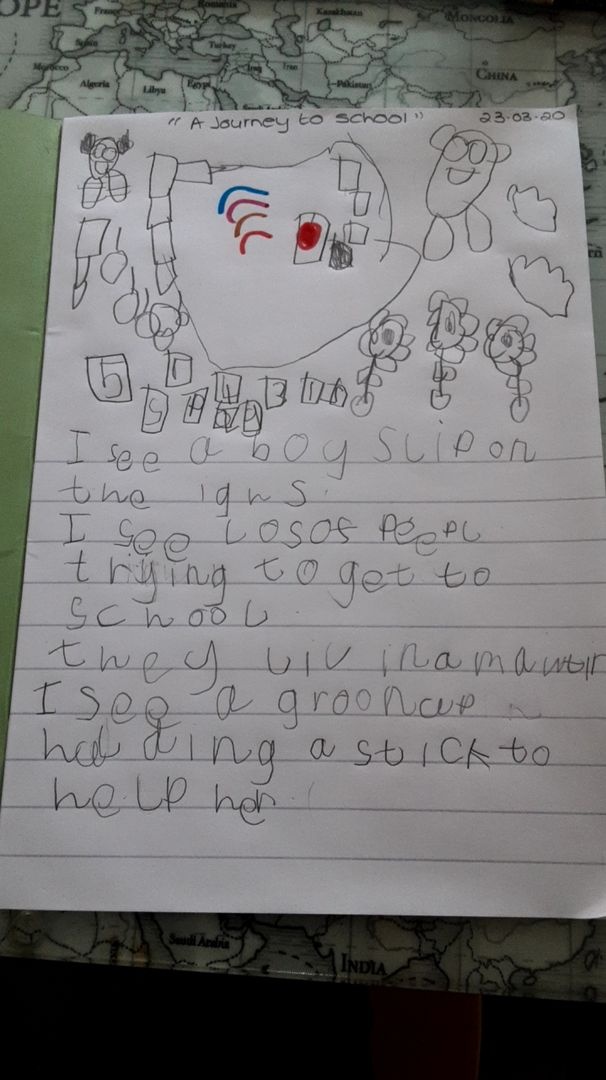 OPE
Romania
Kazakhstan
MONGOLIA
Spain
Turkey
CHINA
Morocco
Algeria
Libya
Egypt
Iraq
Iran
Pakistan
" A Journey to school "
23-03-20
5
I see a boy slip on
the igns.
I see Losos Peepl
trying to get to
school
they liv in a mawtin
I see a groonup
holding a stick to
help her.
Saudi Arabia
INDIA